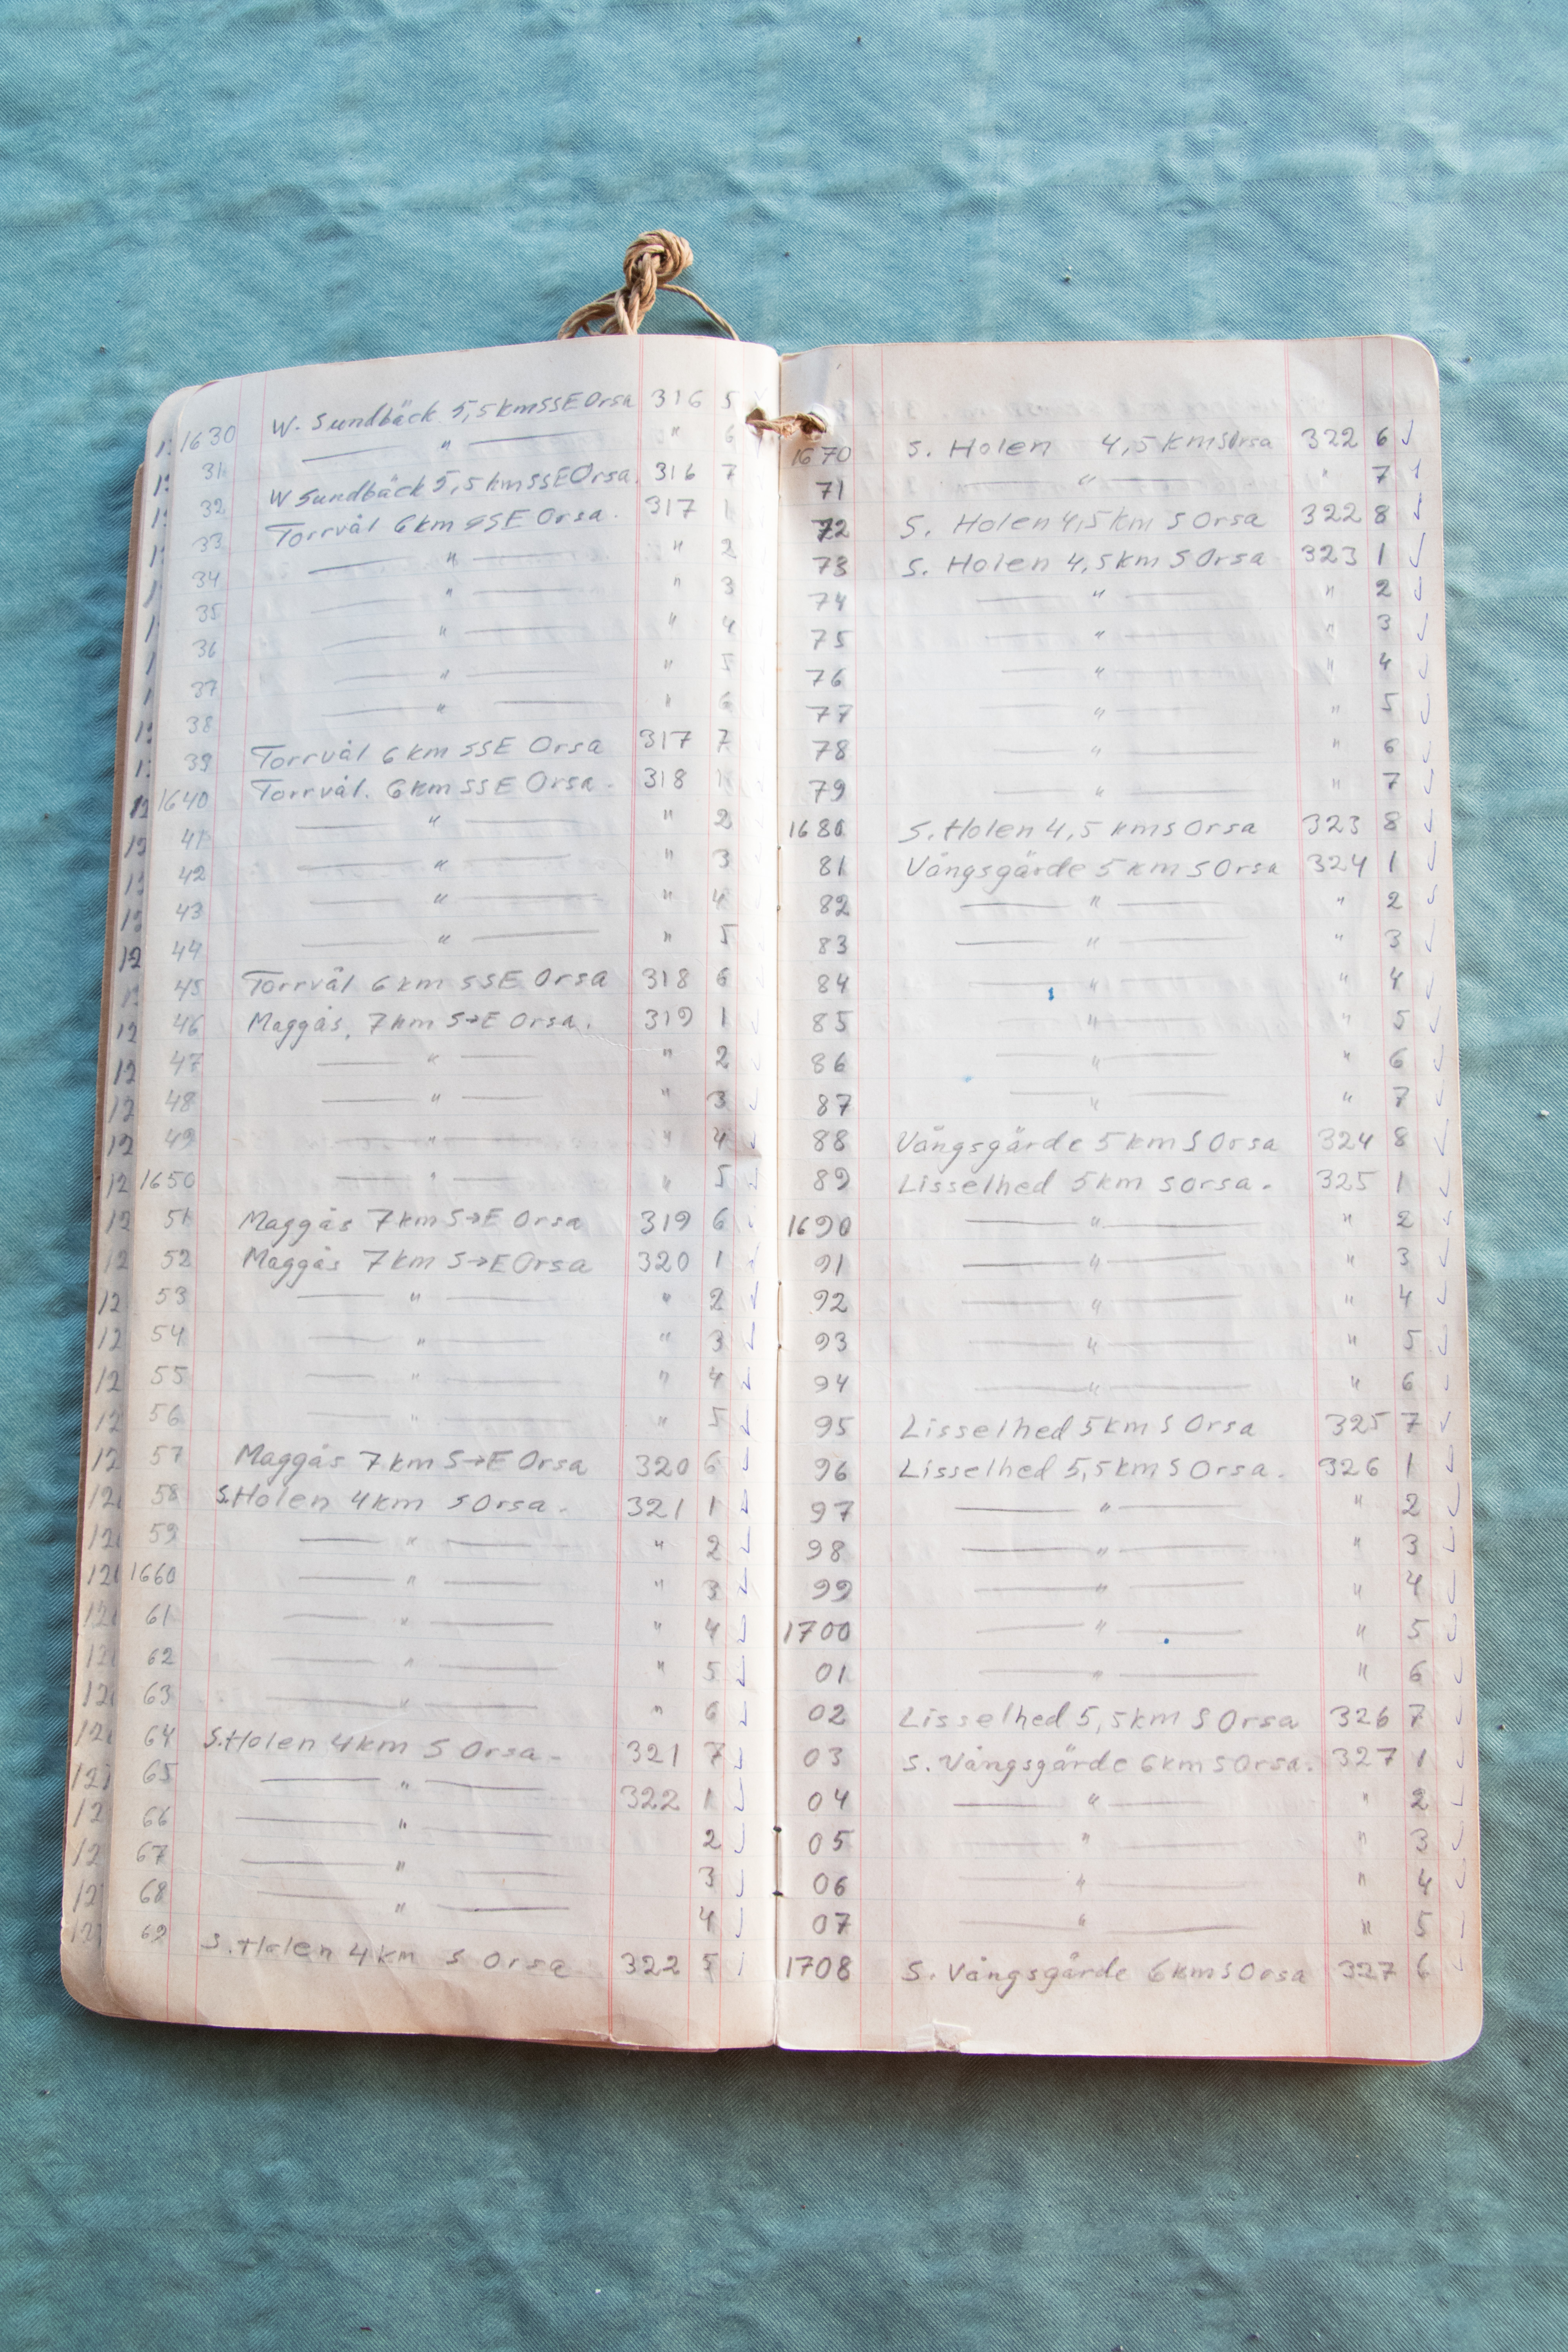 1630 W. Sundbäck 5,5 km SSE Orsa 316 5
31 — " — " 6
32 W Sundbäck 5,5 km SSE Orsa. 316 7
33 Torrvål 6 km SSE Orsa. 317 1
34 — " — " 2
35 — " — " 3
36 — " — " 4
37 — " — " 5
38 — " — " 6
39 Torrvål 6 km SSE Orsa 317 7
1640 Torrvål. 6 km SSE Orsa. 318 1
41 — " — " 2
42 — " — " 3
43 — " — " 4
44 — " — " 5
45 Torrvål 6 km SSE Orsa 318 6
46 Maggås, 7 km S→E Orsa. 319 1
47 — " — " 2
48 — " — " 3
49 — " — " 4
1650 — " — " 5
51 Maggås 7 km S→E Orsa 319 6
52 Maggås 7 km S→E Orsa 320 1
53 — " — " 2
54 — " — " 3
55 — " — " 4
56 — " — " 5
57 Maggås 7 km S→E Orsa 320 6
58 S.Holen 4 km S Orsa. 321 1
59 — " — " 2
1660 — " — " 3
61 — " — " 4
62 — " — " 5
63 — " — " 6
64 S.Holen 4 km S Orsa. 321 7
65 — " — 322 1
66 — " — 2
67 — " — 3
68 — " — 4
69 S.Holen 4 km S Orsa 322 5
1670 S. Holen 4,5 km S Orsa 322 6
71 — " — " 7
72 S. Holen 4,5 km S Orsa 322 8
73 S. Holen 4,5 km S Orsa 323 1
74 — " — " 2
75 — " — " 3
76 — " — " 4
77 — " — " 5
78 — " — " 6
79 — " — " 7
1680 S. Holen 4,5 km S Orsa 323 8
81 Vångsgärde 5 km S Orsa 324 1
82 — " — " 2
83 — " — " 3
84 — " — " 4
85 — " — " 5
86 — " — " 6
87 — " — " 7
88 Vångsgärde 5 km S Orsa 324 8
89 Lisselhed 5 km S Orsa. 325 1
1690 — " — " 2
91 — " — " 3
92 — " — " 4
93 — " — " 5
94 — " — " 6
95 Lisselhed 5 km S Orsa 325 7
96 Lisselhed 5,5 km S Orsa. 326 1
97 — " — " 2
98 — " — " 3
99 — " — " 4
1700 — " — " 5
01 — " — " 6
02 Lisselhed 5,5 km S Orsa 326 7
03 S. Vångsgärde 6 km S Orsa. 327 1
04 — " — " 2
05 — " — " 3
06 — " — " 4
07 — " — " 5
1708 S. Vångsgårde 6 km S Orsa 327 6